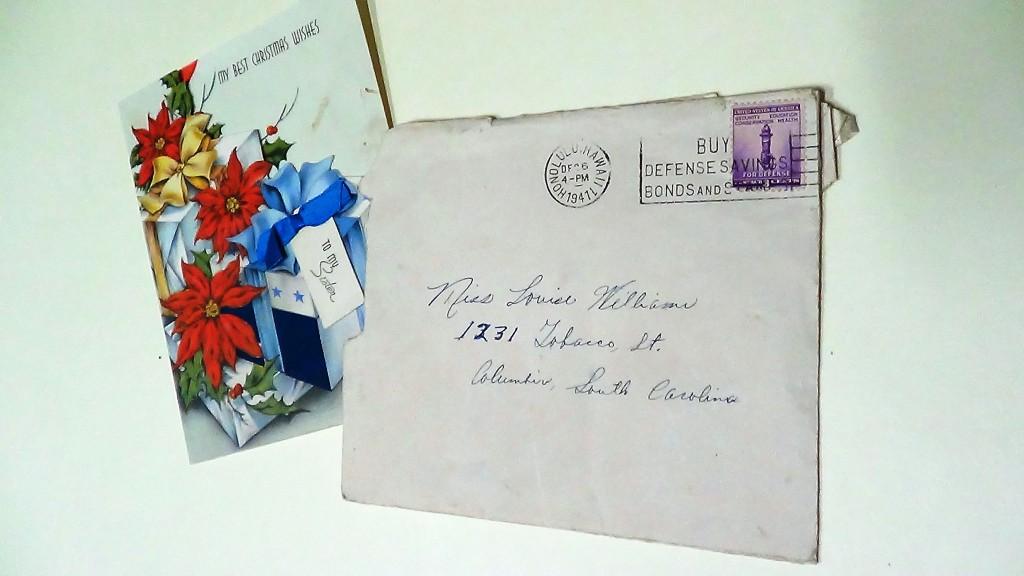 MY BEST CHRISTMAS WISHES
TO MY
Sister
HONOLULU, HAWAII
DEC 6
4-PM
1941
BUY
DEFENSE SAVINGS
BONDS AND S
UNITED STATES OF AMERICA
SECURITY EDUCATION
CONSERVATION HEALTH
FOR DEFENSE
Miss Louise Williams
1231 Tobacco, St.
Columbia, South Carolina